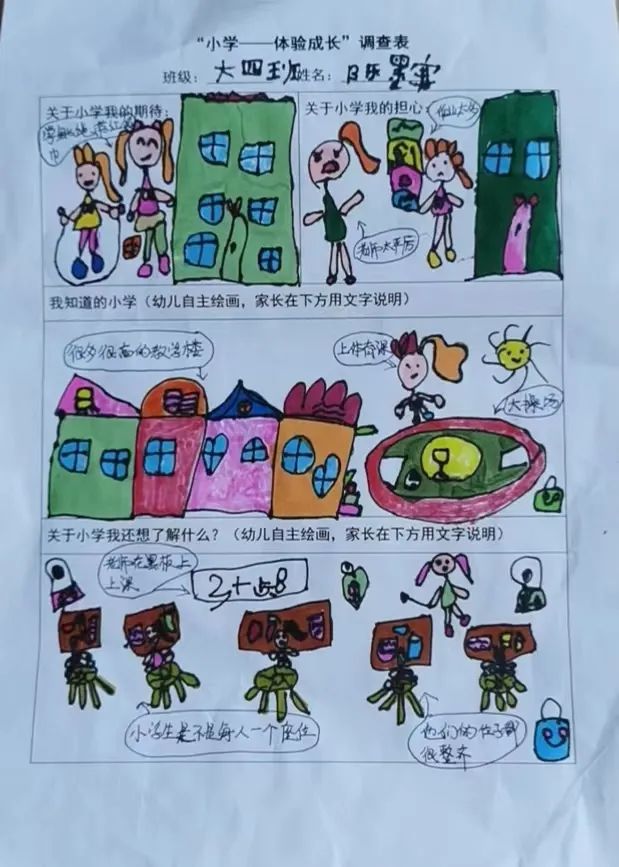 “小学——体验成长”调查表
班级：大四班 姓名：
关于小学我的期待：
关于小学我的担心：
作业太多
老师太严厉
我知道的小学（幼儿自主绘画，家长在下方用文字说明）
很多很高的教学楼
上体育课
大操场
关于小学我还想了解什么？（幼儿自主绘画，家长在下方用文字说明）
老师在黑板上
上课
小学生是不是每人一个座位
他们的位子都
很整齐